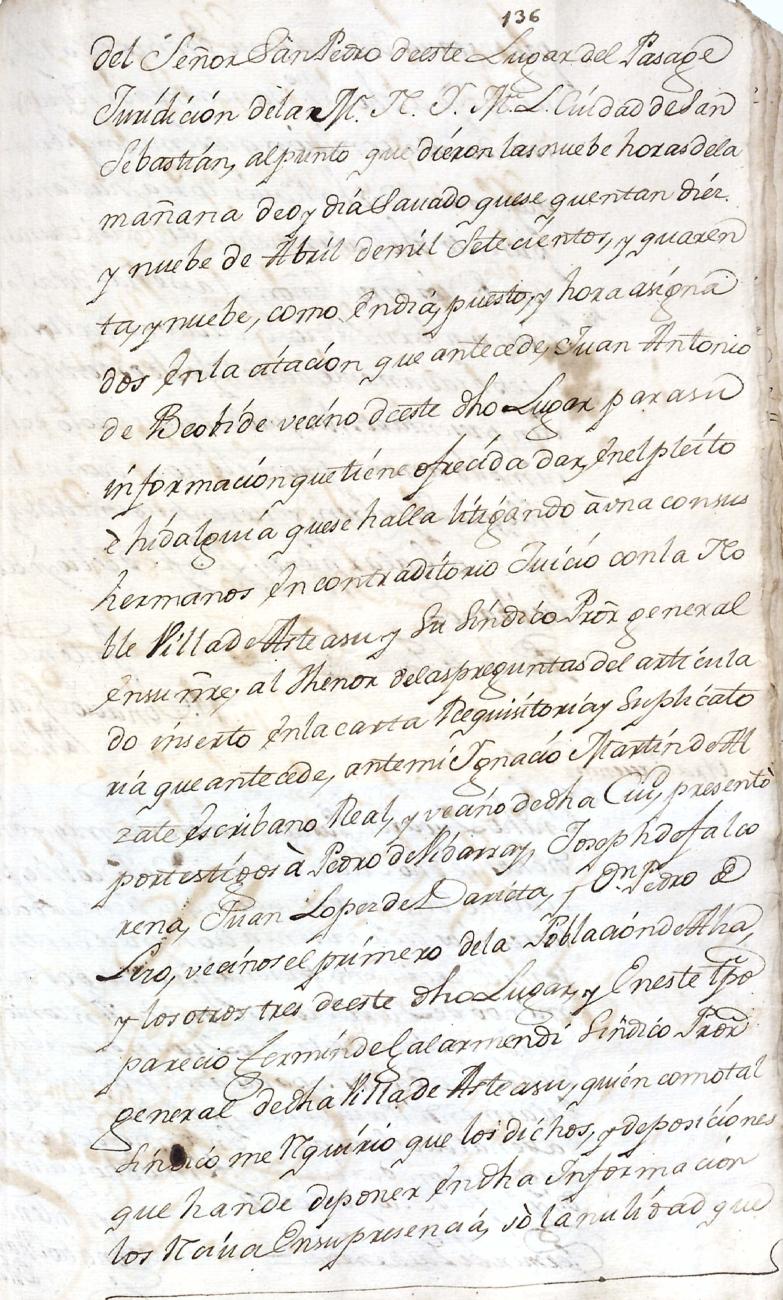 136
del Señor San Pedro deeste Lugar del Pasage
Juridición dela M. N. Y. M. L. Ciudad de San
Sebastián, al punto que diéron las nuebe horas dela
mañana de oy diá Savado que se quentan diéz
y nuebe de Abril demil Setecientos, y quaren
ta, y nuebe, como en diá, puesto, y hora asigna
dos en la citación que antecede, Juan Antonio
de Beobide vecino deeste dho Lugar para su
información que tiene ofrecida dar, en el pleito
è hidalguia que se halla litigando à vna con sus
hermanos en contraditorio Juicio con la No
ble Villa de Asteasu y Su Sindico Pror general
en su nre, al thenor delas preguntas del articula
do inserto en la carta Requisitoria y Suplicato
ria que antecede, ante mi Ignacio Martin de Al
zate escribano Real, y vecino de dha Ciud, presentò
por testigos à Pedro de Vibarray, Joseph de falco
rena, Juan Lopez de Darieta, y Dn Pedro de
Lizo, vecinos el primero dela Población de Alza,
y los otros tres deeste dho Lugar, y En este tpo
pareció fermin de Galarmendi Sindico Pror
general de dha Villa de Asteasu, quién como tal
Sindico me Rquirió que los dichos, y deposiciones
que han de deponer en dha Información
los Rciva En su presencia, sò la nulidad que